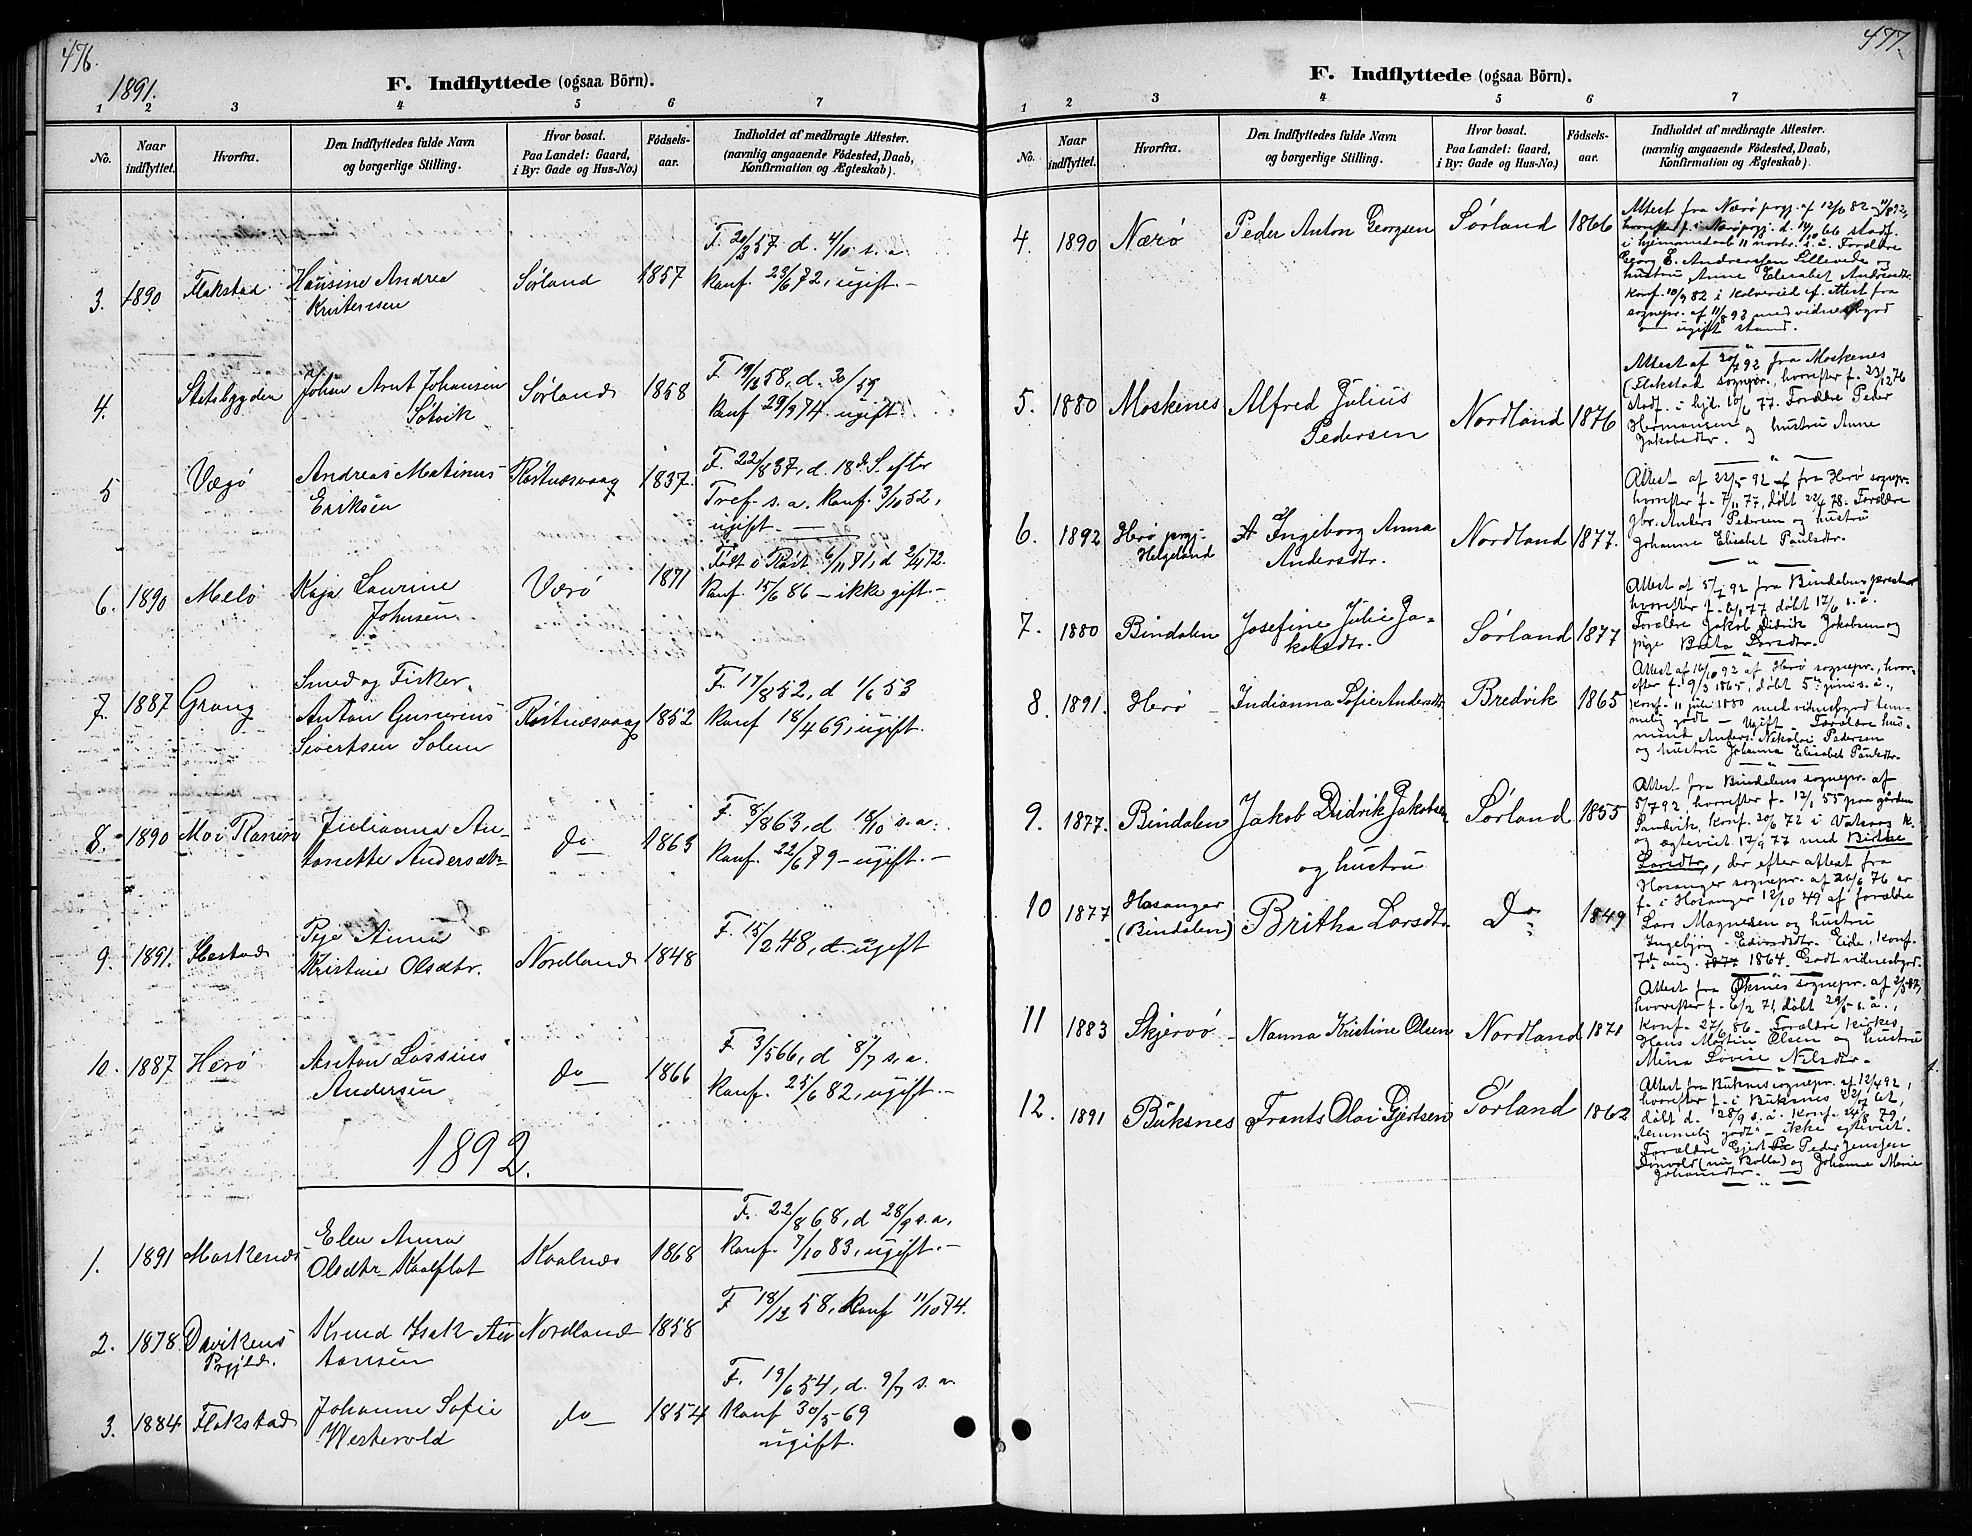 476.
1891.
F. Indflyttede (ogsaa Börn).
1 2 3 4 5 6 7
No. Naar indflyttet. Hvorfra. Den Indflyttedes fulde Navn og borgerlige Stilling. Hvor bosat. Paa Landet: Gaard, i By: Gade og Hus-No.) Födsels-aar. Indholdet af medbragte Attester. (navnlig angaaende Födested, Daab, Konfirmation og Ægteskab).
3. 1890 Flakstad Hansine Andrea Sørland 1857 F. 20/3 57 d. 4/10 s. a.
Kristensen Konf. 23/6 72, ugift.-
4. Stetsbygden Johan Arnt Johansen Sørland 1858 F. 19/ 58, d. 30/ 59
Søtvik Konf. 29/9 74. ugift
5 Vægø Andreas Matinus Røstnesvaag 1837. F. 22/8 37, d. 18d. S. efter
Eriksen Tref. s. a. Konf. 3/10 52,
ugift. —
6. 1890 Melö Kaja Laurine Værö 1871 Født i Røst 6/11 71, d 2/4 72.
Johnsen. Konf. 15/6 86 – ikke gift.-
Smed og Fisker
7. 1887 Grong Anton Gunerius Røstnesvaag 1852 F. 17/8 52, d 1/6 53
Sivertsen Solem Konf 18/4 69, ugift.
8. 1890 Mo i Ranen Julianna An- do 1863 F. 8/8 63, d 18/10 s. a.
tonette Andersdtr Konf. 22/6 79 – ugift.-
9. 1891. Pige Anna Nordland 1848 F. 15/2 48, d. ugift
Kristine Olsdtr.
10. 1887 Herö Anton Lossius do 1866 F. 3/5 66, d 8/7 s. a.
Andersen Konf. 25/6 82, ugift.-
1892.
1. 1891 Moskenes Elen Anna Kvalnes 1868 F. 22/8 68, d 28/9 s. a,
Olsdtr Kvalflot Konf. 7/10 83, ugift.-
2. 1878. Davikens Knud Isak An Nordland 1858 F 18/12 58, Konf 11/10 74.
Prgjld. tonsen
3. 1884 Flakstad Johanne Sofie do 1854 F. 19/6 54, d. 9/7 s. a.
Westervold Konf 30/5 69
ugift.
477.
F. Indflyttede (ogsaa Börn).
1 2 3 4 5 6 7
No. Naar indflyttet. Hvorfra. Den Indflyttedes fulde Navn og borgerlige Stilling. Hvor bosat. Paa Landet: Gaard, i By: Gade og Hus-No.) Födsels-aar. Indholdet af medbragte Attester. (navnlig angaaende Födested, Daab, Konfirmation og Ægteskab).
4. 1890 Nærö Peder Anton Georgsen Sørland 1866
Attest fra Nærö prgj. af 12/ 82 – 11/8 92,
hvorefter f. i Nærö prgj. d. 14/10 66 stadf.
i hjemmedaab 11 novbr. s. å. Forældre
Georg E. Anderssen Lillevede og
hustru Anne Elisabet Andersdtr
Konf. 10/9 82 i Kolvereid ef. Attest fra
sognepr. af 11/8 92 med vidnesbyrd
om ugift stand.
5. 1880 Moskenes Alfred Julius Nordland 1876
Pedersen
Attest af 20/ 92 fra Moskenes
(Flakstad sognepr., hvorefter f. 23/12 76
stadf. i kjd. 10/6 77. Forældre Peder
Hermansen og hustru Anne
Jakobsdtr.
6. 1892 Herö prgj. Ingeborg Anna Nordland 1877.
Helgeland Andersdtr.
Attest af 22/5 92 fra Herö sognepr.
hvorefter f. 7/11 77, döbt 22/4 78. Forældre
gbr. Anders Pedersen og hustru
Johanne Elisabet Paulsdtr.
7. 1880 Bindalen Josefine Julie Ja- Sørland 1877
kobsdtr.
Attest af 5/7 92 fra Bindalens prestek
hvorefter f. 6/1 77 döbt 17/6 s. å.
Forældre Jakob Didrik Jakobsen og
pige Brita Larsdtr.
8. 1891. Herö Indianna Sofie Andersdtr. Bredvik 1865
Attest af 16/10 92 af Herö sognepr., hvor-
efter f. 9/3 1865, döbt 5te juni s. å.,
Konf. 11 juli 1880 med vidnesbyrd tem-
melig godt – Ugift – Forældre hus-
mand Anders Nikolai Pedersen
og hustru Johanna Elisabet Paulsdtr.
9. 1877. Bindalen Jakob Didrik Jakobsen Sørland 1855
og hustru
Attest fra Bindalens sognepr. af
5/7 92, hvorefter f. 12/1 55 paa gården
Sandvik, Konf. 20/6 72 i Vatsaas K.
og ægteviet 17/9 77 med Brithe
Larsdtr,, der efter attest fra
10 1877 Hosanger Britha Larsdtr. Do 1849
(Bindalen)
Hosanger sognepr. af 26/6 76 er
f. i Hosanger 12/10 49 af forældre
Lars Magnesen og hustru
Ingebjörg Eide, Konf.
7de aug. 1864. Godt vidnesbyrd.
11 1883 Skjervö Nanna Kristine Olsen Nordland 1871
Attest fra Öksnes sognepr. af 2/5 87,
hvorefter f. 6/2 71, döbt 29/5 s. å.,
Konf. 27/6 86. Forældre kirkes.
Hans Martin Olsen og hustru
Mina Lovise Nilsdtr.
12. 1891 Buksnes Frants Olai Gjertsen Sørland 1862
Attest fra Buksnes sognepr. af 12/4 92,
hvorefter f. i Buksnes 22/7 62,
döbt d. 28/9 s. å. Konf. 24/8 79,
"temmelig godt" – ikke egteviet.
Forældre Gjert Peder Jenssen
(nu Bolla) og Johanne Marie
Johansdtr.